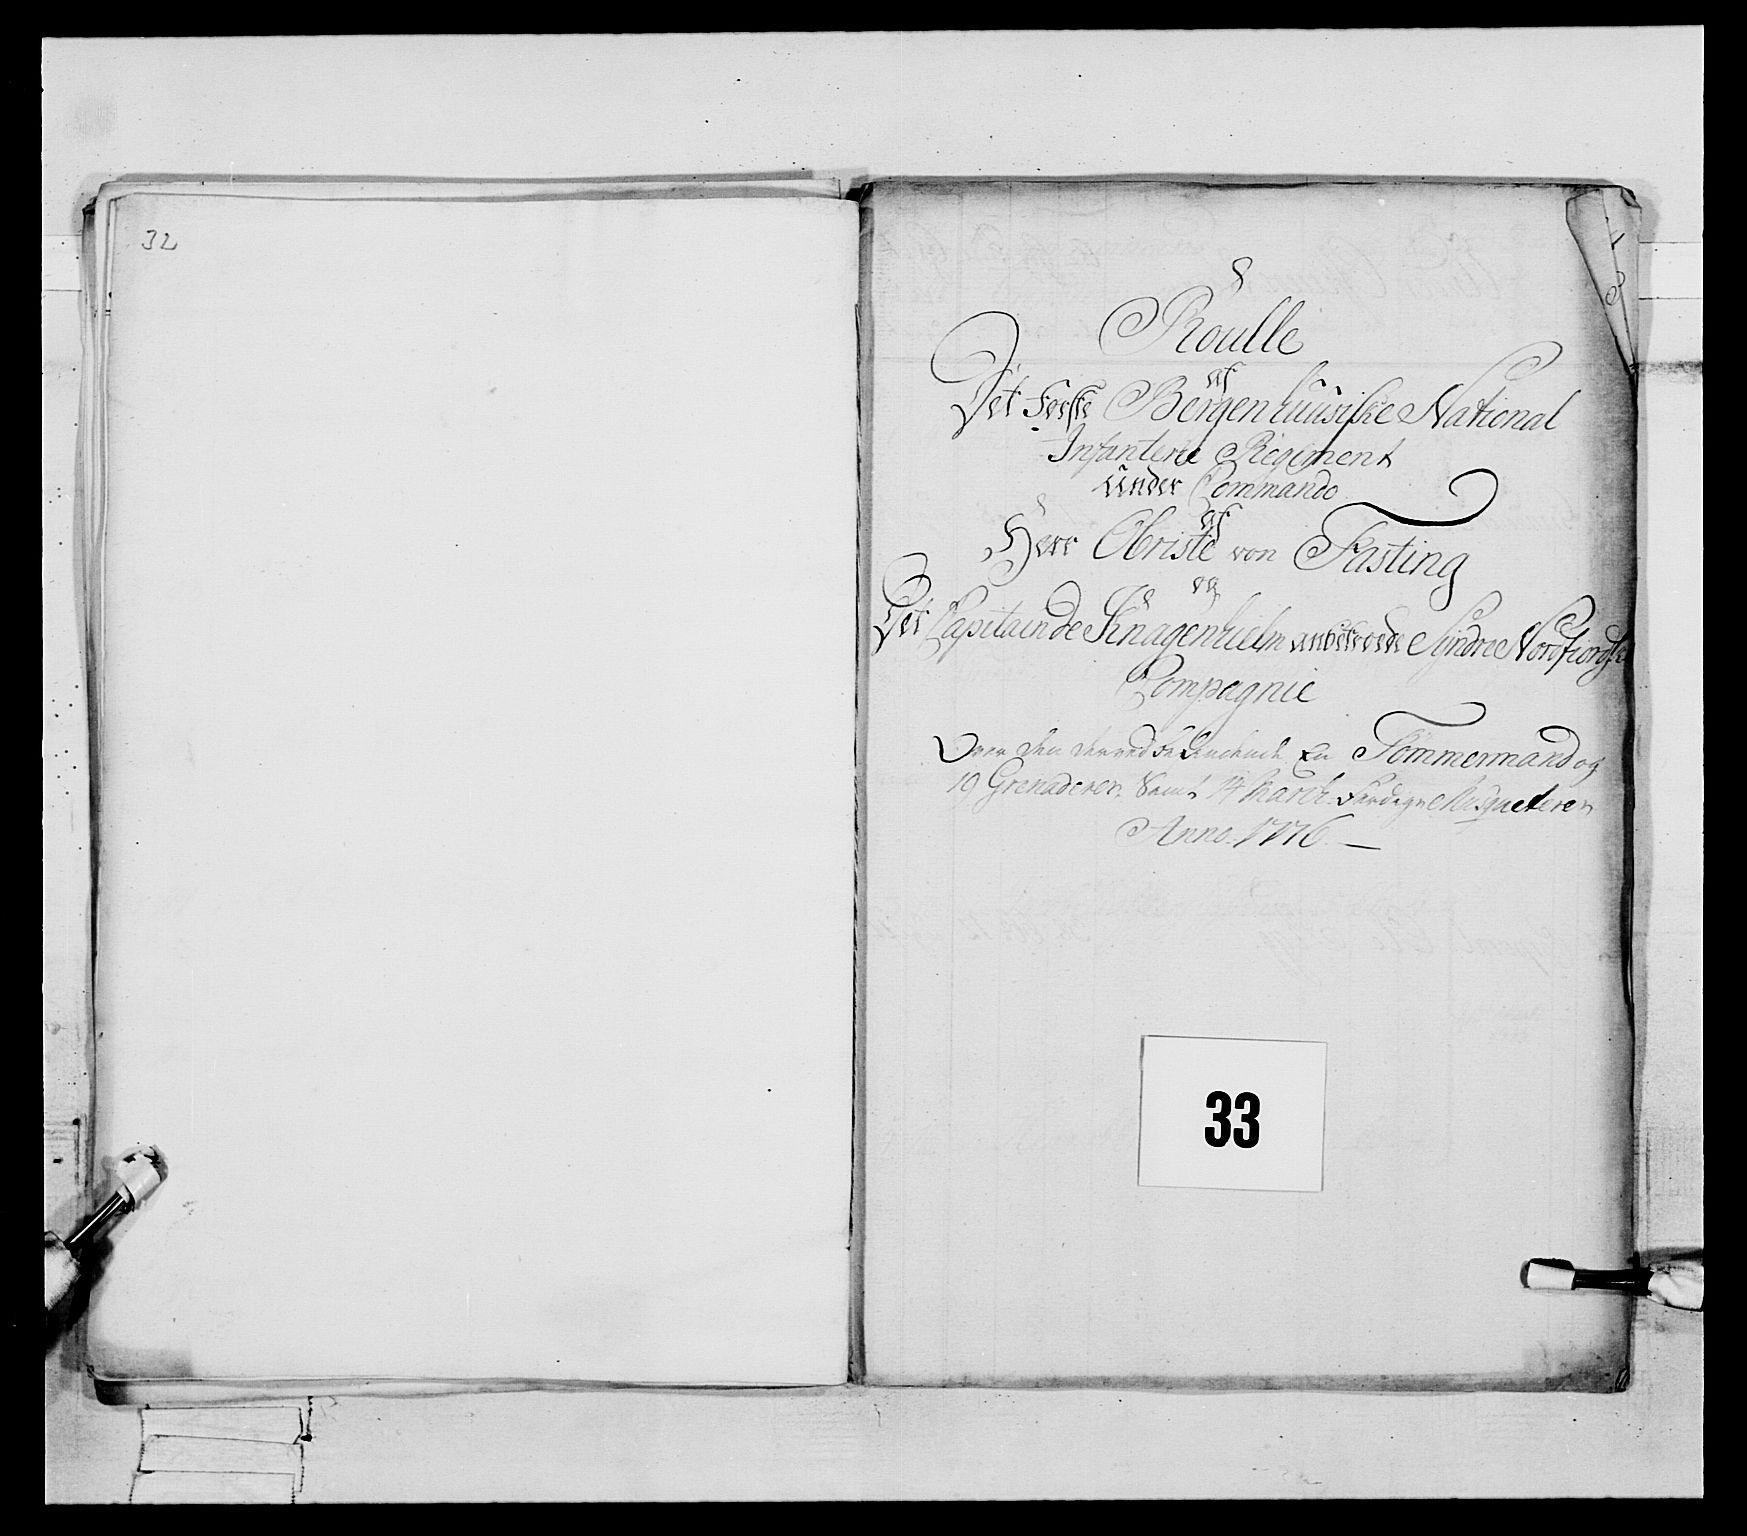 32
Roulle
af
Det Første Bergenhuusiske National
Infanterie Regiment
Under Commando
af
Herr Obriste von Fasting
og
Det Capitain de Knagenhielm anbetroede Syndre Nordfiordske
Compagnie
Over den derved En Tömmermand og
19 Grenaderer Samt 14 March Færdige Musqueterer
Anno 1776
33